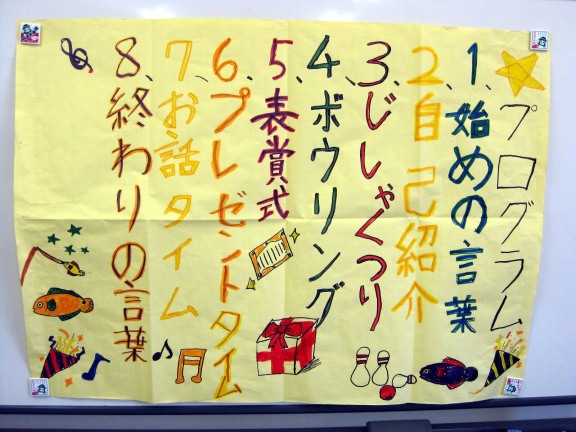 プログラム
1、始めの言葉
2、自己紹介
3、じしゃくつり
4、ボウリング
5、表賞式
6、プレゼントタイム
7、お話タイム
8、終わりの言葉